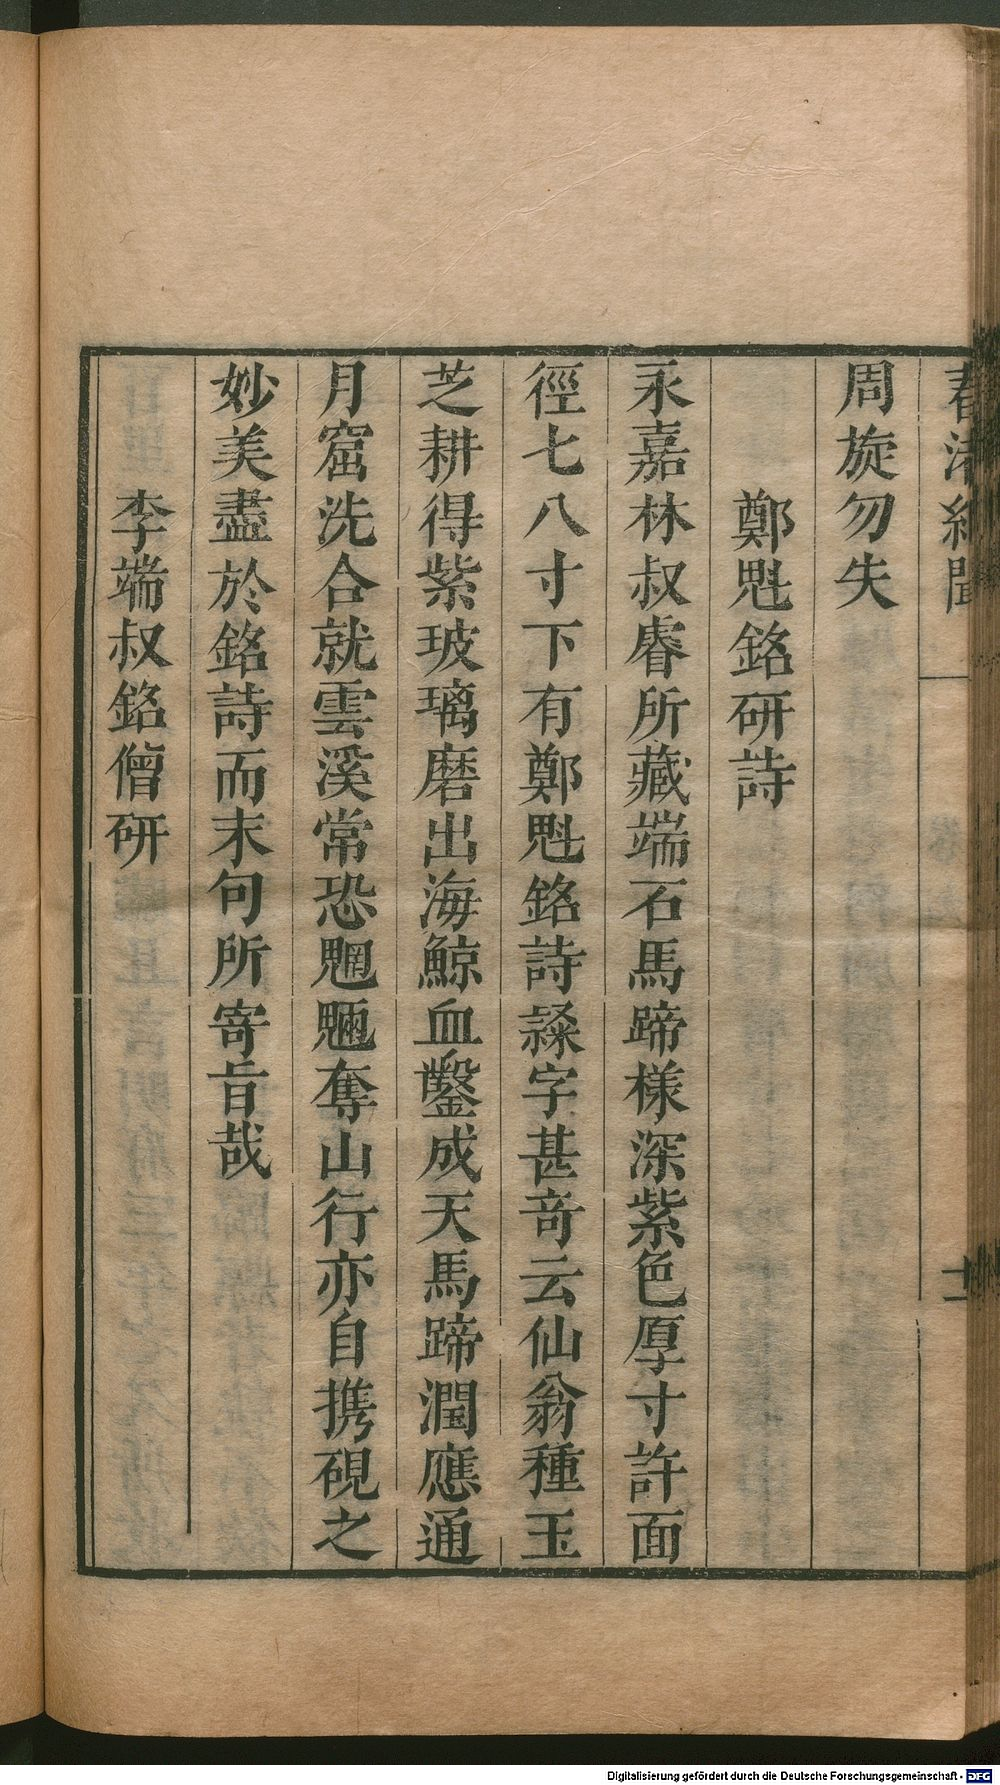 春渚紀聞
十一
周旋勿失
鄭魁銘研詩
永嘉林叔睿所藏端石馬蹄樣深紫色厚寸許面
徑七八寸下有鄭魁銘詩隸字甚奇云仙翁種玉
芝耕得紫玻璃磨出海鯨血鑿成天馬蹄潤應通
月窟洗合就雲溪常恐魍魎奪山行亦自携硯之
妙美盡於銘詩而末句所寄旨哉
李端叔銘僧研
Digitalisierung gefördert durch die Deutsche Forschungsgemeinschaft - DFG